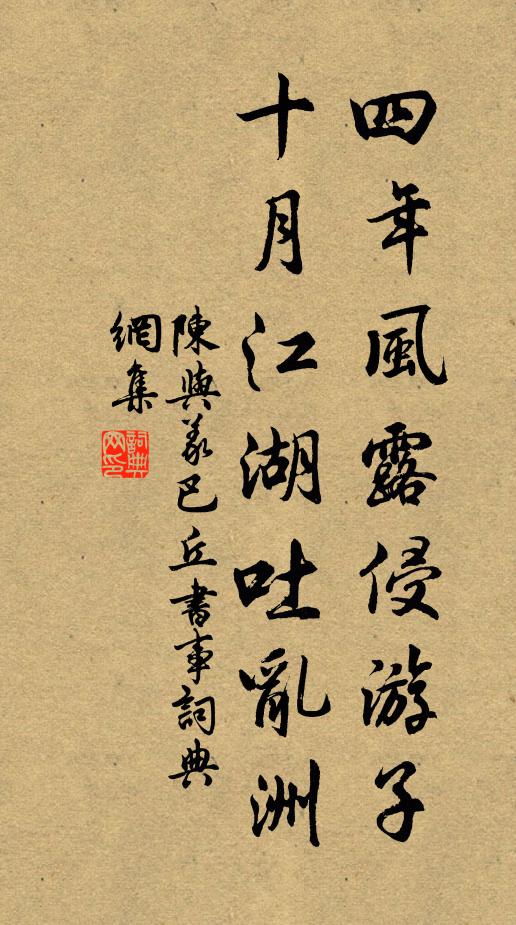 四年風露侵游子
十月江湖吐亂洲
陳與義巴丘書事詞典
網集
詞典網印